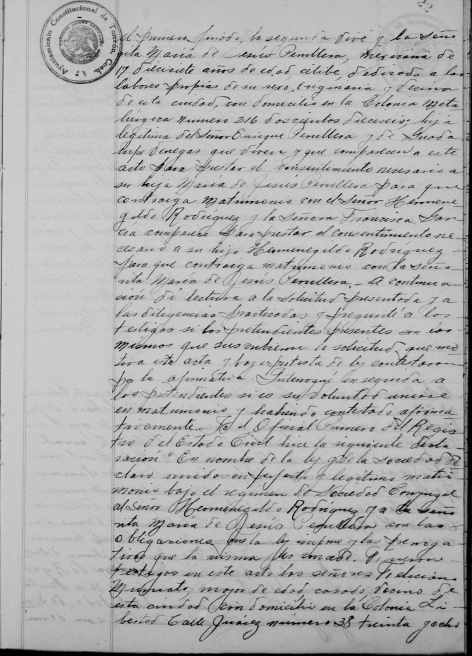 Ayuntamiento Constitucional de Torreón, Coah.
el primero, la segunda y la Seño
rita María de Jesús Penullera, mexicana de
17 diecisiete años de edad, célibe, dedicada a las
labores propias de su sexo, originaria y vecina
de esta ciudad, con domicilio en la Colonia Meta
lurgica numero 216 doscientos dieciseis, hija
legitima del Señor Enrique Penullera y de Guada
lupe Venegas que viven y que comparecen a este
acto para prestar el consentimiento necesario a
su hija María de Jesús Penullera para que
contraiga matrimonio con el Señor Hermene
gildo Rodriguez y la Señora Francisca Gar
cia comparece para prestar el consentimiento ne
cesario a su hijo Hermenegildo Rodriguez
para que contraiga matrimonio con la Seño
rita María de Jesús Penullera. A continua
ación di lectura a la solicitud presentada y a
las diligencias practicadas y pregunté a los
testigos si los pretendientes presentes son los
mismos que suscribieron la solicitud que mo
tiva esta acta y bajo protesta de ley contestaron
por la afirmativa. Interrogué en seguida a
los pretendientes si es su voluntad unirse
en matrimonio y habiendo contestado afirma
tivamente. Yo el Oficial Primero del Regis
tro del Estado Civil hice la siguiente decla
ración "En nombre de la ley y de la Sociedad de
claro unidos en perfecto y legitimo matri
monio bajo el regimen de Sociedad Conyugal
al Señor Hermenegildo Rodriguez y a la Seño
rita María de Jesús Penullera con las
obligaciones que la ley impone y las prerroga
tivas que la misma les concede.
testigos en este acto los señores Feliciano
mayor de edad casado, vecino de
esta ciudad con domicilio en la Colonia Li
bertad Calle Juarez numero 38 treinta y ocho